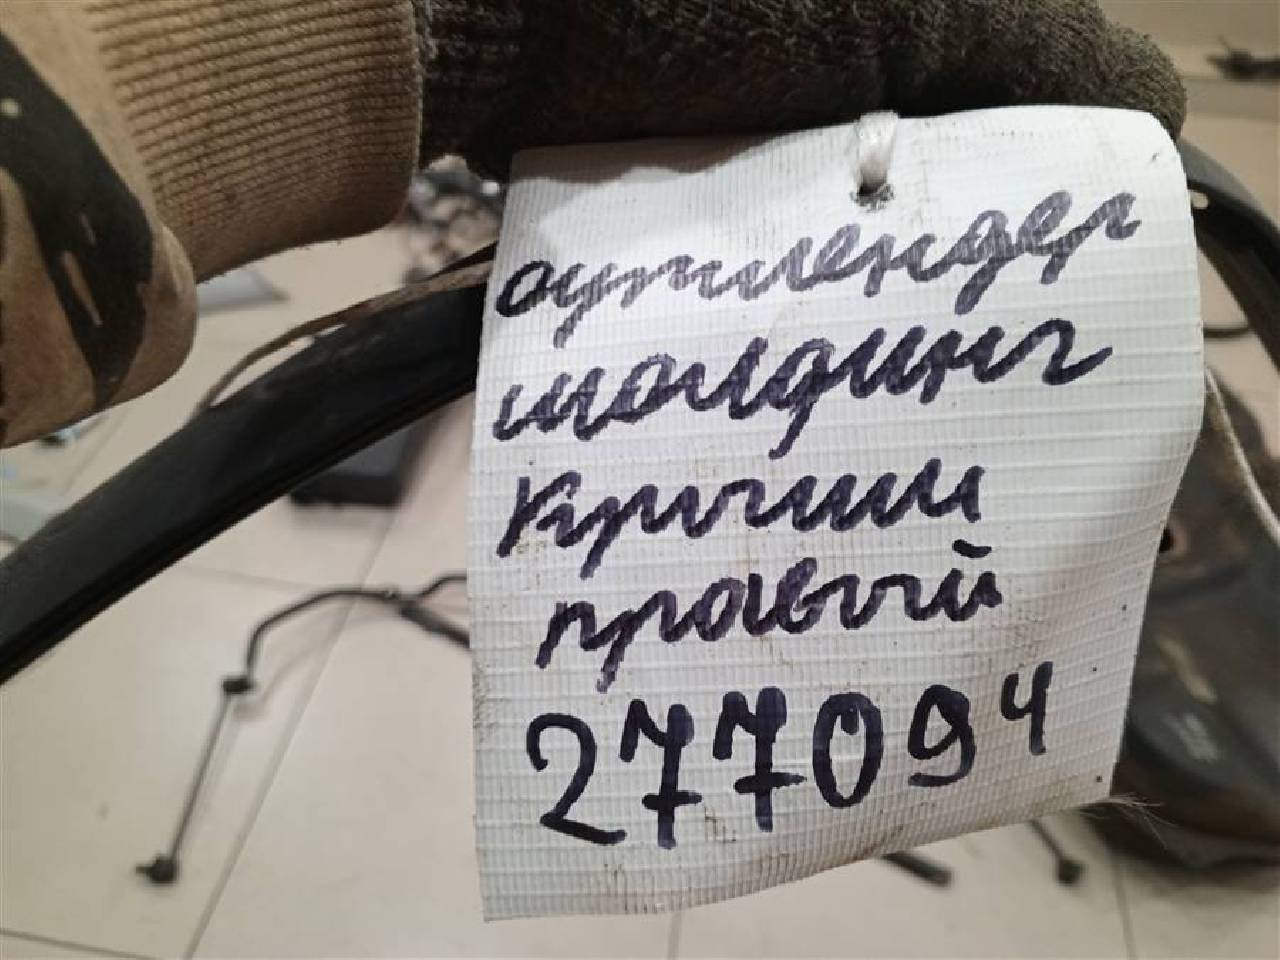 аутлендер
молдинг
крыши
правый
277094